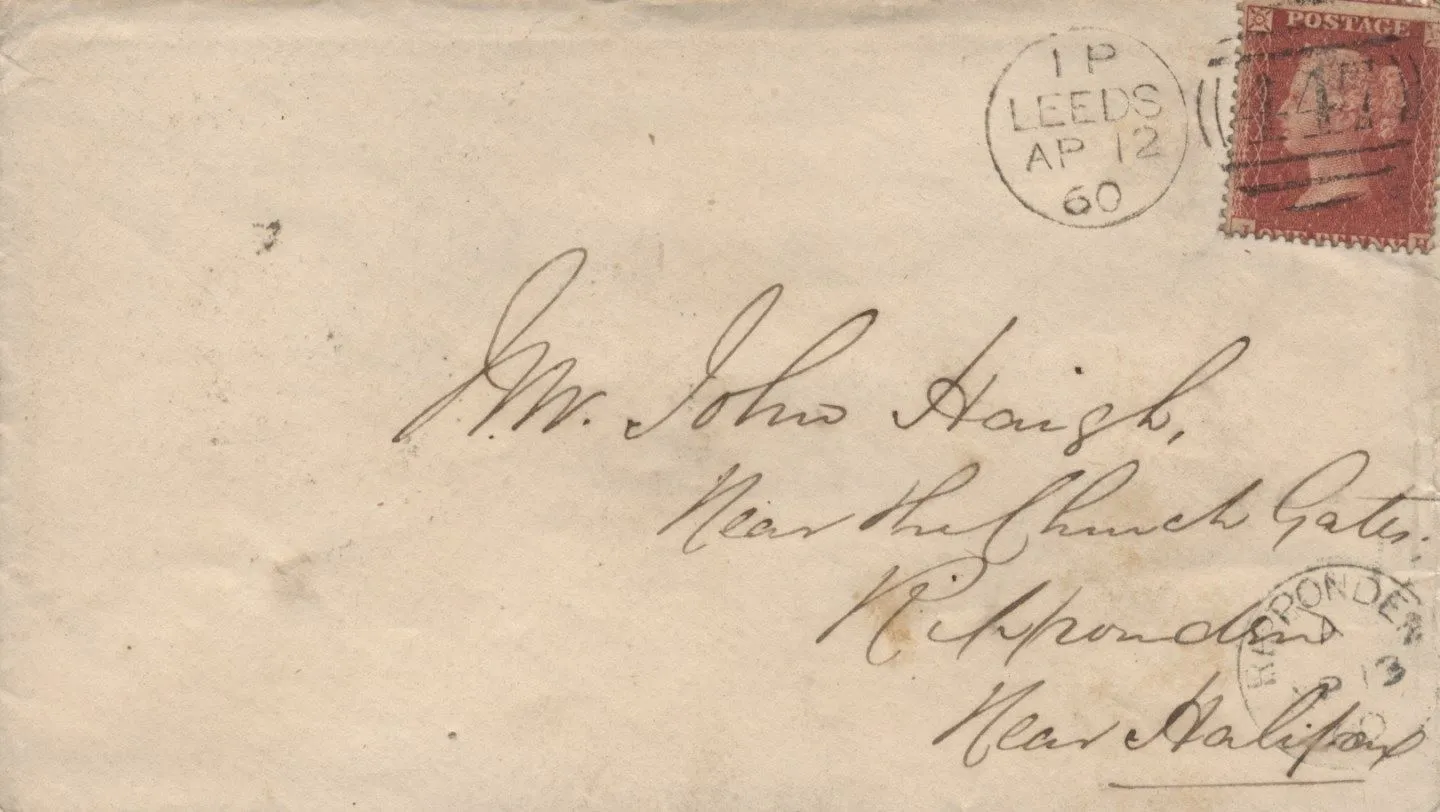 POSTAGE
1 P
LEEDS
AP 12
60
447
ONE PENNY
Mr. John Haigh,
Near the Church Gates.
Ripponden
Near Halifax
RIPPONDEN
A
AP 13